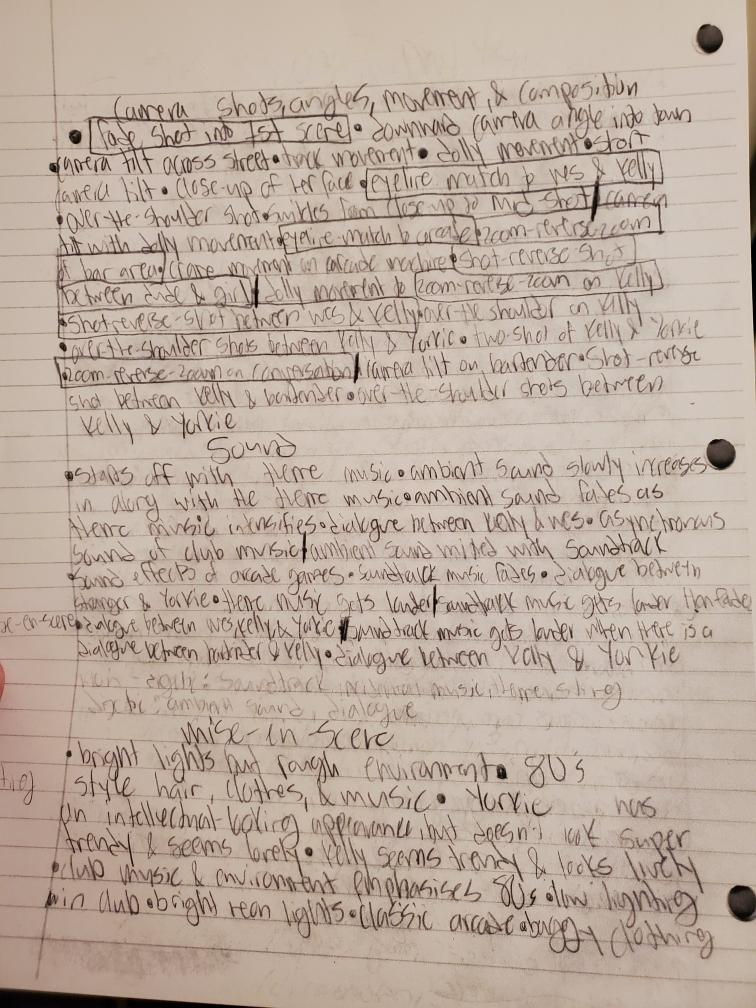 Camera shots, angles, movement, & composition
• Fade shot into 1st scene • downward camera angle into down
camera tilt across street • track movement • dolly movement • start
camera tilt • close-up of her face • eyeline match to wes & Kelly
• over-the-shoulder shot • switches from close up to mid shot / camera
tilt with dolly movement • eyeline-match to arcade • zoom-reverse-zoom
of bar area / crane movement on arcade machine • shot-reverse shot
between dude & girl / dolly movement to zoom-reverse-zoom on Kelly
• Shot-reverse-shot between wes & Kelly • over-the shoulder on Kelly
• over-the-shoulder shots between Kelly & Yorkie • two-shot of Kelly & Yorkie
• zoom-reverse-zoom on conversation / camera tilt on bartender • Shot-reverse
shot between Kelly & bartender • over-the-shoulder shots between
Kelly & Yorkie
Sound
• starts off with theme music • ambient sound slowly increases
in along with the theme music • ambient sound fades as
theme music intensifies • dialogue between Kelly & wes • asynchronous
sound of club music / ambient sound mixed with soundtrack
• sound effects of arcade games • soundtrack music fades • dialogue between
stranger & Yorkie • theme music gets louder / soundtrack music gets louder then fades
• dialogue between wes, Kelly, & Yorkie / soundtrack music gets louder when there is a
dialogue between bartender & Kelly • dialogue between Kelly & Yorkie
non-diegetic: soundtrack, original music, theme, string
Diegetic: ambient sound, dialogue
mise-in-scene
• bright lights but rough environment • 80's
style hair, clothes, & music • Yorkie has
an intellectual-looking appearance but doesn't look super
trendy & seems lonely • Kelly seems trendy & looks lively
• club music & environment emphasises 80s • low lighting
in club • bright neon lights • classic arcade • baggy clothing